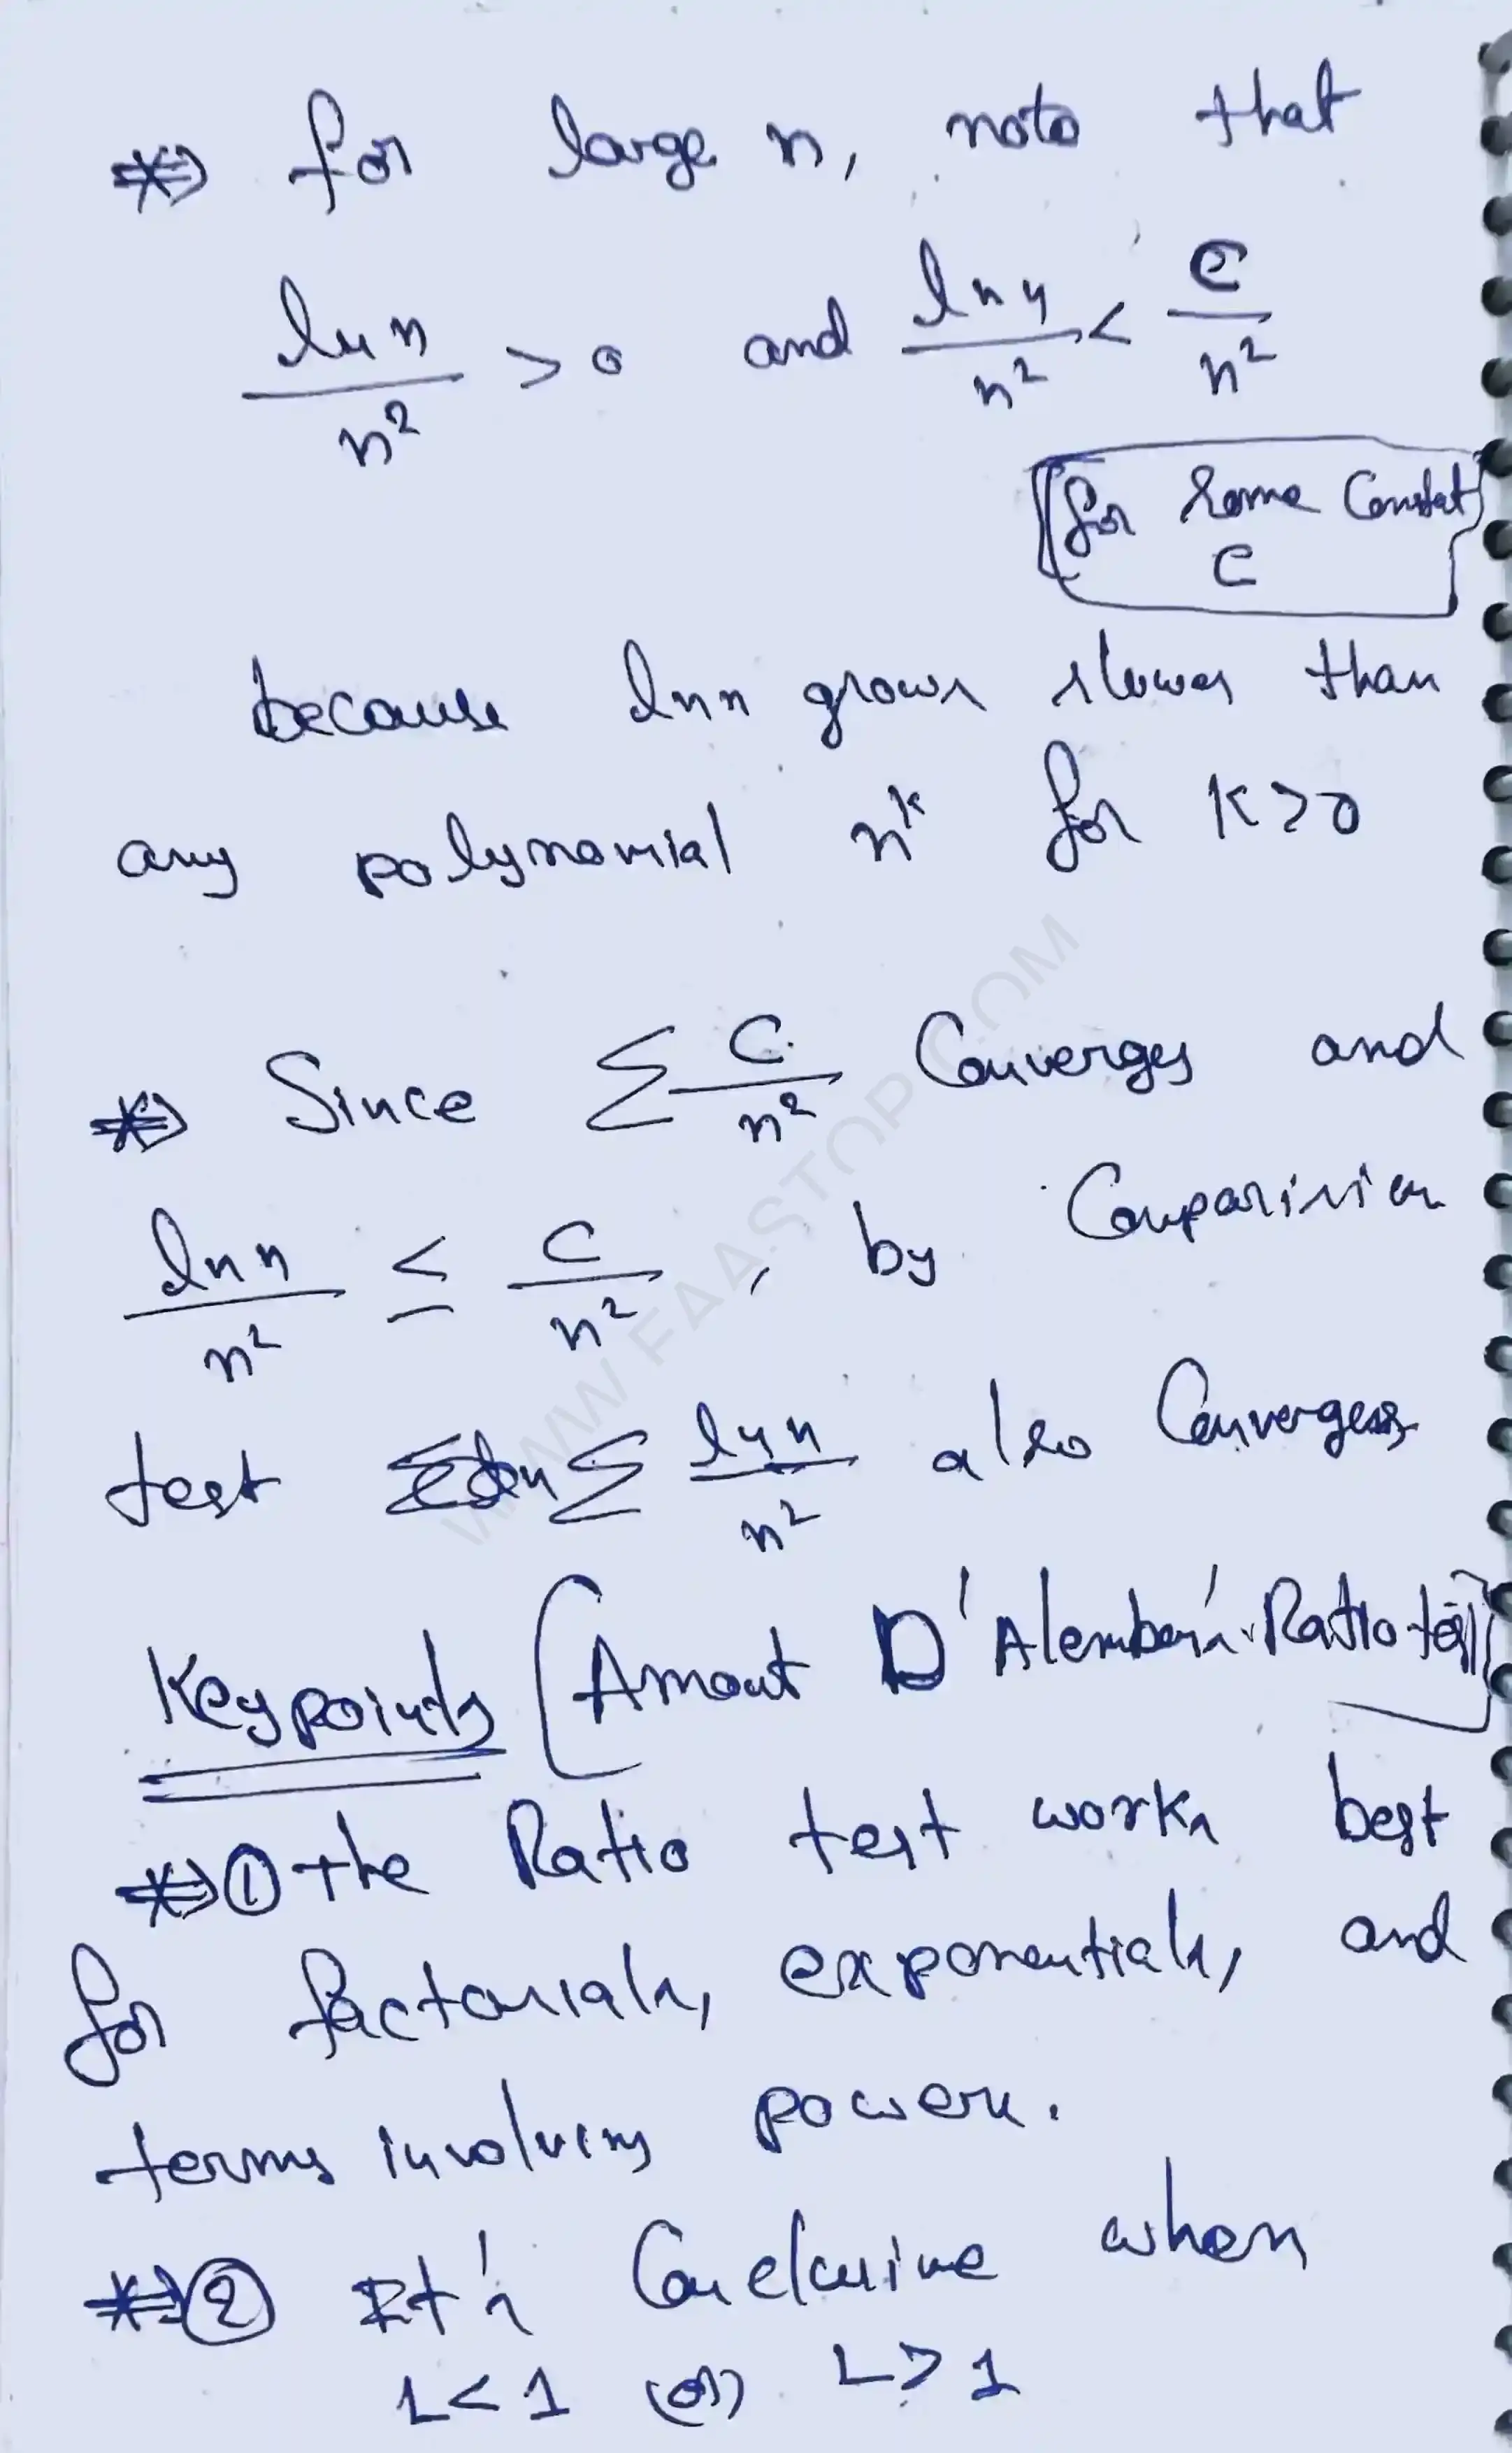 ⇒ for large n, note that
ln n / n² > 0 and ln n / n² < C / n²
[for some Constat
C
because ln n grows slower than
any polynomial n^k for K>0
⇒ Since Σ C / n² Converges and
ln n / n² ≤ C / n² , by Comparision
test Σ ln n / n² also Converges
Keypoints [Amout D'Alembert's Ratio test]
⇒ ① the Ratio test works best
for factorials, exponentials, and
terms involving powers.
⇒ ② It's Conclusive when
L<1 (or) L>1
WWW.FAASTOP.COM